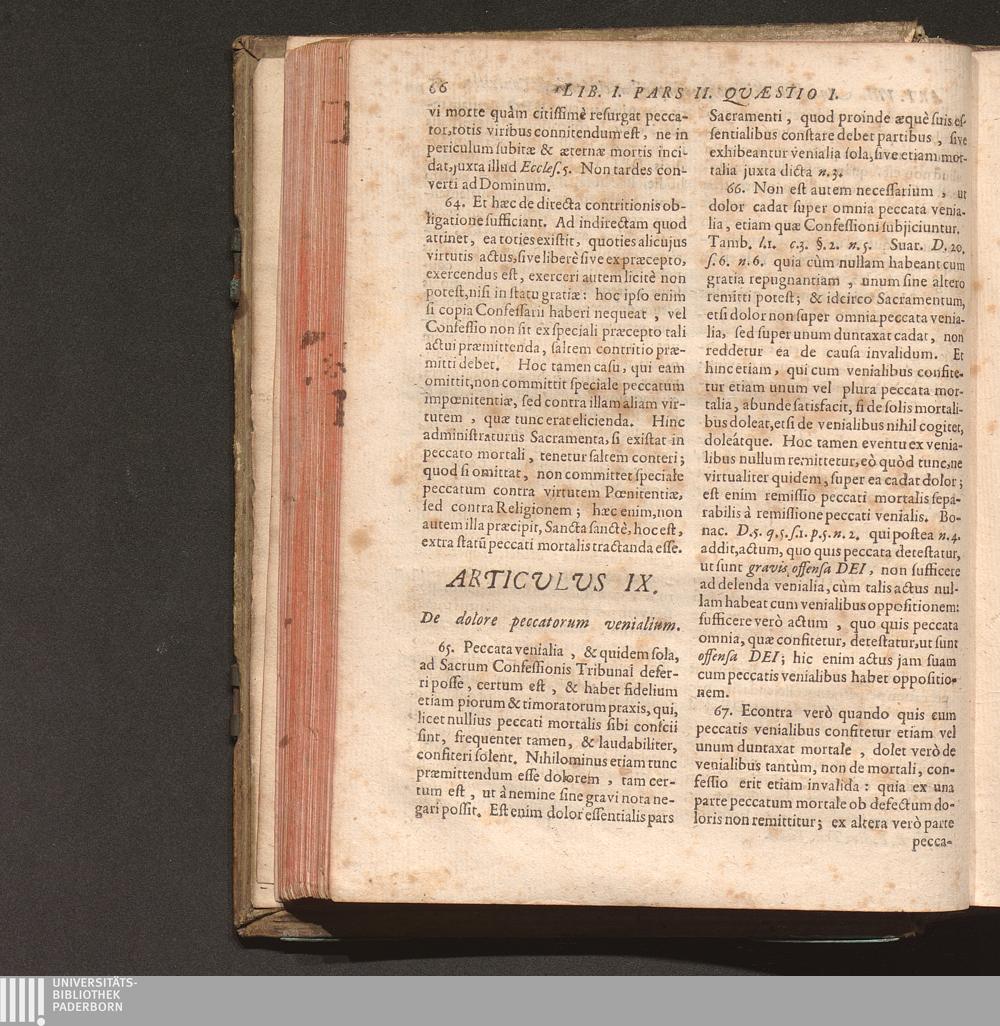 66 LIB. I. PARS II. QVÆSTIO I.
vi morte quàm citiſſimè reſurgat pecca-
tor, totis viribus connitendum eſt, ne in
periculum ſubitæ & æternæ mortis inci-
dat, juxta illud Eccleſ. 5. Non tardes con-
verti ad Dominum.
64. Et hæc de directa contritionis ob-
ligatione ſufficiant. Ad indirectam quod
attinet, ea toties exiſtit, quoties alicujus
virtutis actus, ſive liberè ſive ex præcepto,
exercendus eſt, exerceri autem licitè non
poteſt, niſi in ſtatu gratiæ: hoc ipſo enim
ſi copia Confeſſarii haberi nequeat, vel
Confeſſio non ſit ex ſpeciali præcepto tali
actui præmittenda, ſaltem contritio præ-
mitti debet. Hoc tamen caſu, qui eam
omittit, non committit ſpeciale peccatum
impœnitentiæ, ſed contra illam aliam vir-
tutem, quæ tunc erat elicienda. Hinc
adminiſtraturus Sacramenta, ſi exiſtat in
peccato mortali, tenetur ſaltem conteri;
quod ſi omittat, non committet ſpeciale
peccatum contra virtutem Pœnitentiæ,
ſed contra Religionem; hæc enim, non
autem illa præcipit, Sancta ſanctè, hoc eſt,
extra ſtatũ peccati mortalis tractanda eſſe.
ARTICVLVS IX.
De dolore peccatorum venialium.
65. Peccata venialia, & quidem ſola,
ad Sacrum Confeſſionis Tribunal defer-
ri poſſe, certum eſt, & habet fidelium
etiam piorum & timoratorum praxis, qui,
licet nullius peccati mortalis ſibi conſcii
ſint, frequenter tamen, & laudabiliter,
confiteri ſolent. Nihilominus etiam tunc
præmittendum eſſe dolorem, tam cer-
tum eſt, ut à nemine ſine gravi nota ne-
gari poſſit. Eſt enim dolor eſſentialis pars
Sacramenti, quod proinde æquè ſuis eſ-
ſentialibus conſtare debet partibus, ſive
exhibeantur venialia ſola, ſive etiam mor-
talia juxta dicta n. 3.
66. Non eſt autem neceſſarium, ut
dolor cadat ſuper omnia peccata venia-
lia, etiam quæ Confeſſioni ſubjiciuntur.
Tamb. l. 1. c. 3. §. 2. n. 5. Suar. D. 20.
ſ. 6. n. 6. quia cùm nullam habeant cum
gratia repugnantiam, unum ſine altero
remitti poteſt; & idcirco Sacramentum,
etſi dolor non ſuper omnia peccata venia-
lia, ſed ſuper unum duntaxat cadat, non
reddetur ea de cauſa invalidum. Et
hinc etiam, qui cum venialibus confite-
tur etiam unum vel plura peccata mor-
talia, abunde ſatisfacit, ſi de ſolis mortali-
bus doleat, etſi de venialibus nihil cogitet,
doleátque. Hoc tamen eventu ex venia-
libus nullum remittetur, eò quòd tunc, ne
virtualiter quidem, ſuper ea cadat dolor;
eſt enim remiſſio peccati mortalis ſepa-
rabilis à remiſſione peccati venialis. Bo-
nac. D. 5. q. 5. ſ. 1. p. 5. n. 2. qui poſtea n. 4.
addit, actum, quo quis peccata deteſtatur,
ut ſunt gravis offenſa DEI, non ſufficere
ad delenda venialia, cùm talis actus nul-
lam habeat cum venialibus oppoſitionem:
ſufficere verò actum, quo quis peccata
omnia, quæ confitetur, deteſtatur, ut ſunt
offenſa DEI; hic enim actus jam ſuam
cum peccatis venialibus habet oppoſitio-
nem.
67. Econtra verò quando quis cum
peccatis venialibus confitetur etiam vel
unum duntaxat mortale, dolet verò de
venialibus tantùm, non de mortali, con-
feſſio erit etiam invalida: quia ex una
parte peccatum mortale ob defectum do-
loris non remittitur; ex altera verò parte
pecca-
UNIVERSITÄTS-
BIBLIOTHEK
PADERBORN